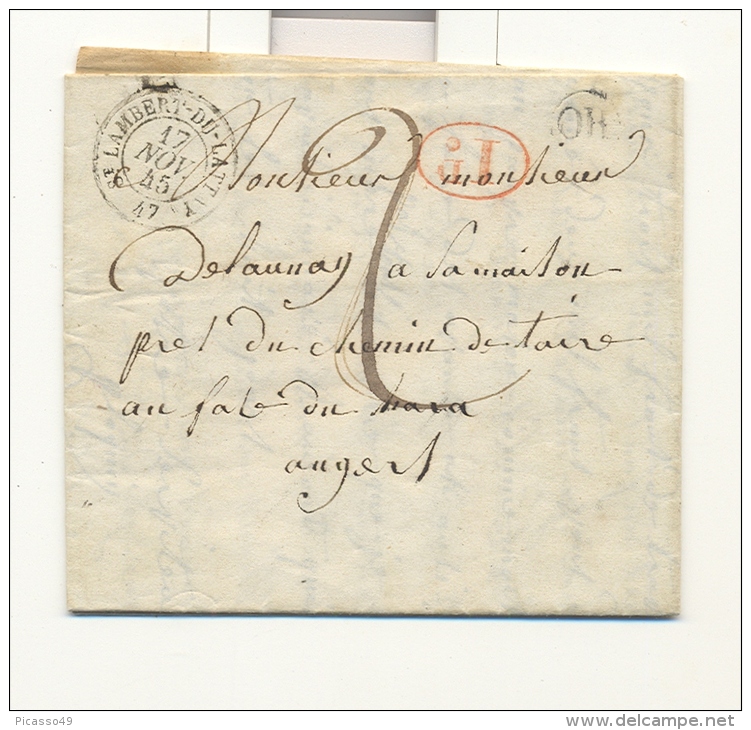 ST LAMBERT-DU-LATTAY
17
NOV.
45
47
Monsieur monsieur
Delaunay a sa maison
pres du chemin de taire
au fate du hara
angers
2
Picasso49
www.delcampe.net